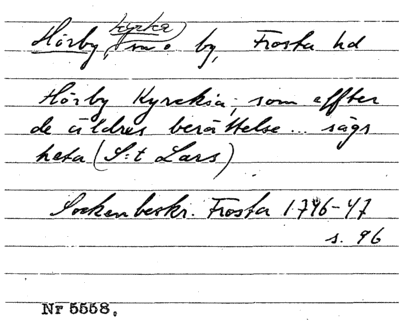 kyrka
Hörby, sn o by, Frosta hd
Hörby Kyrckia, som effter
de äldres berättelse... sägs
heta (S:t Lars)
Sockenbeskr. Frosta 1746-47
s. 96
Nr 5558.